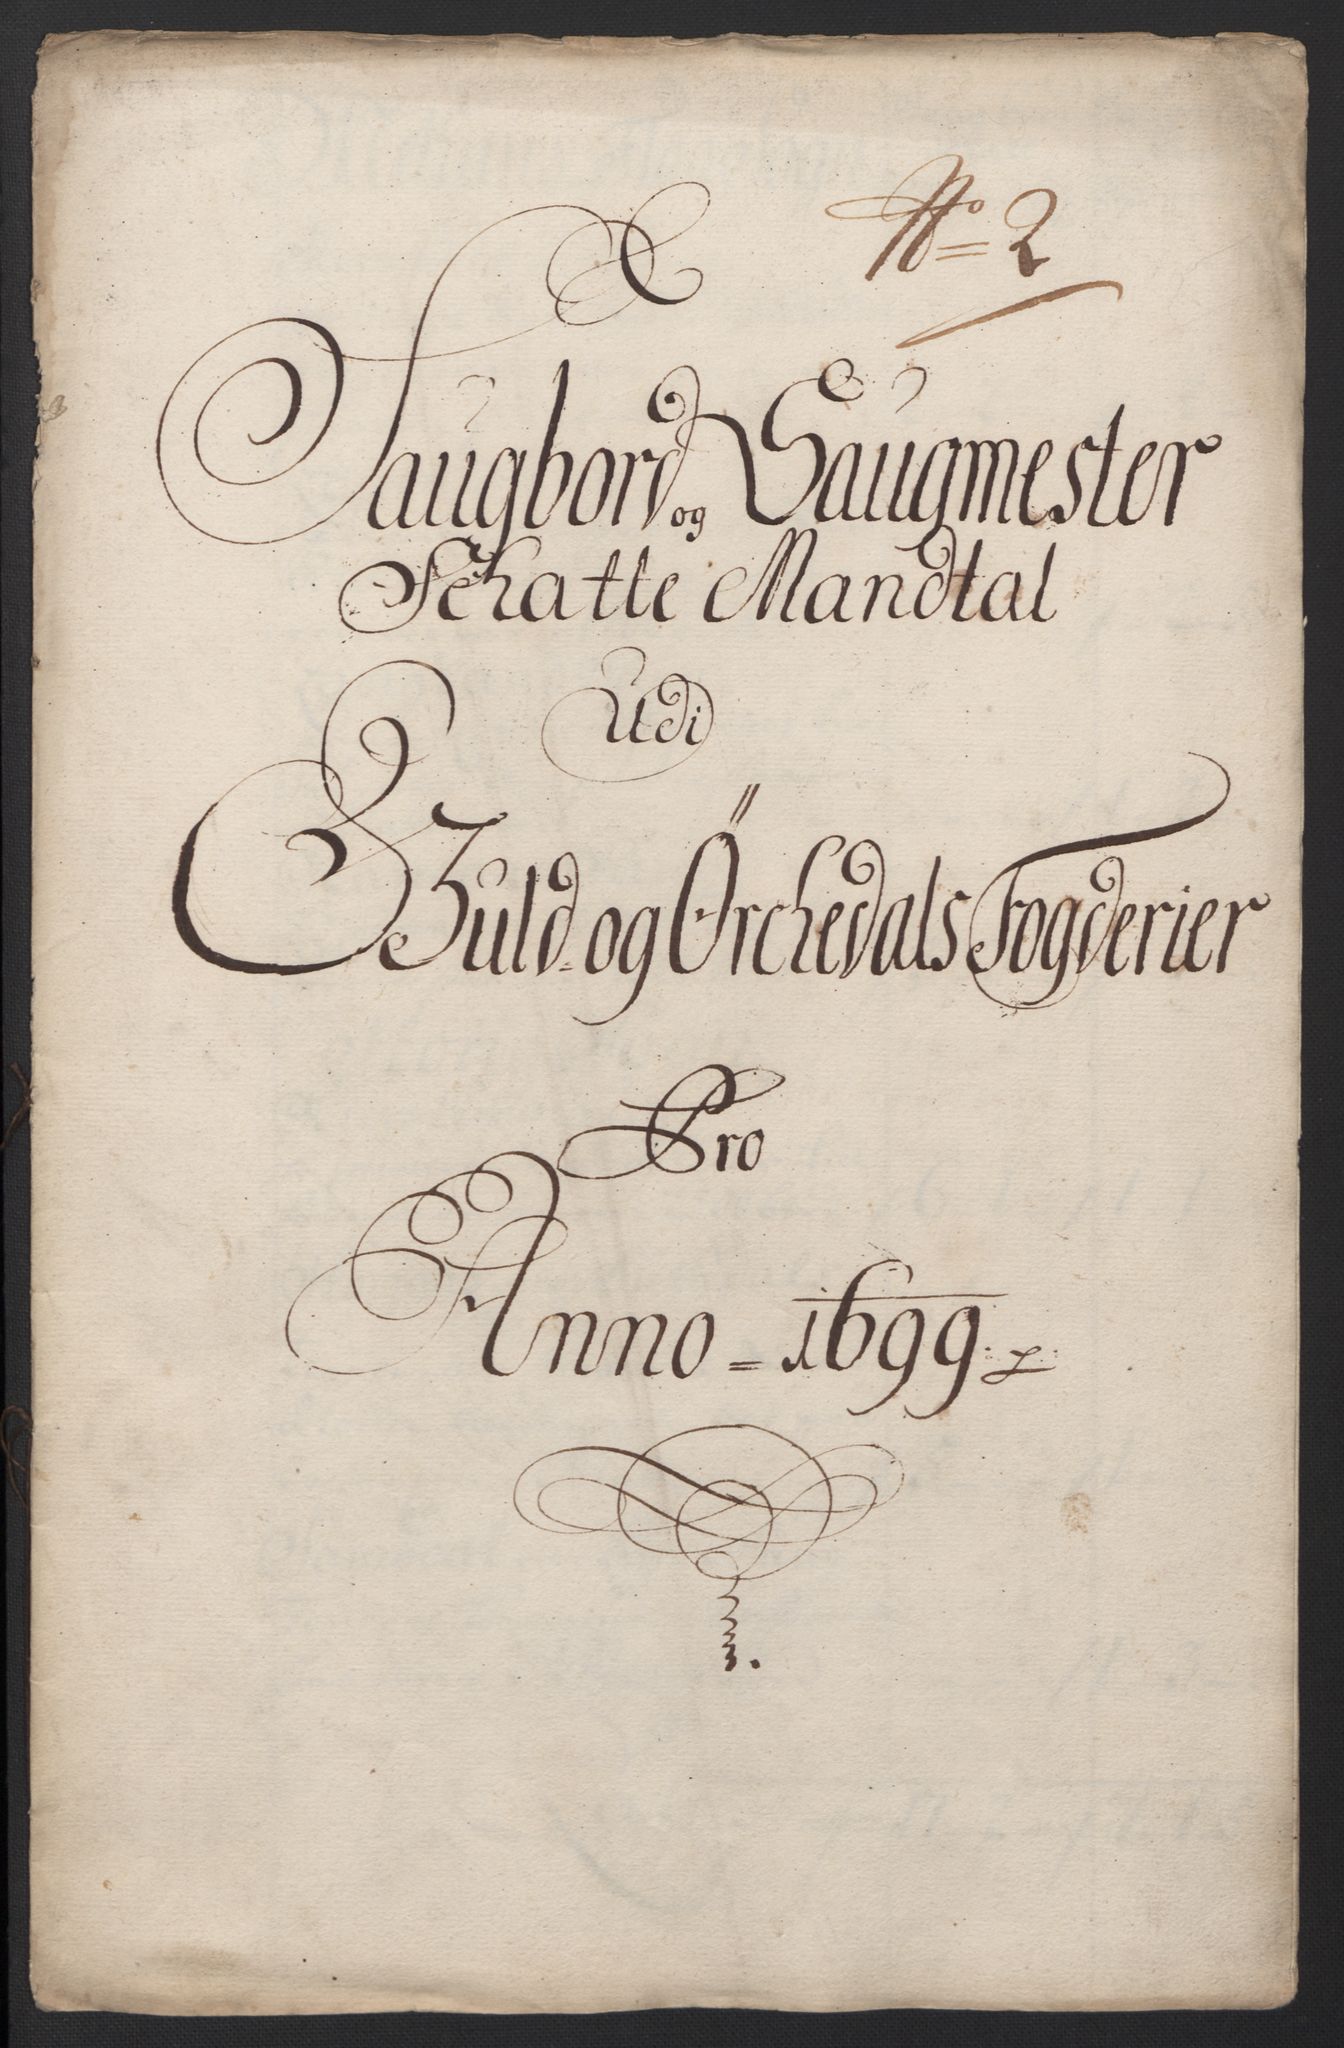 No 2
Saugbord og Saugmester
Schatte Mandtal
Udi
Guld- og Örchedals Fogderier
Pro
Anno = 1699.